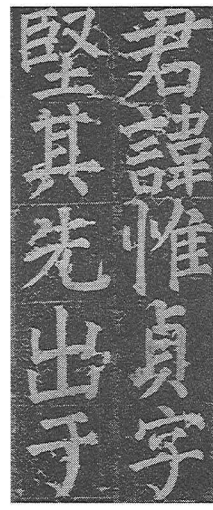 君諱惟貞字
堅其先出于